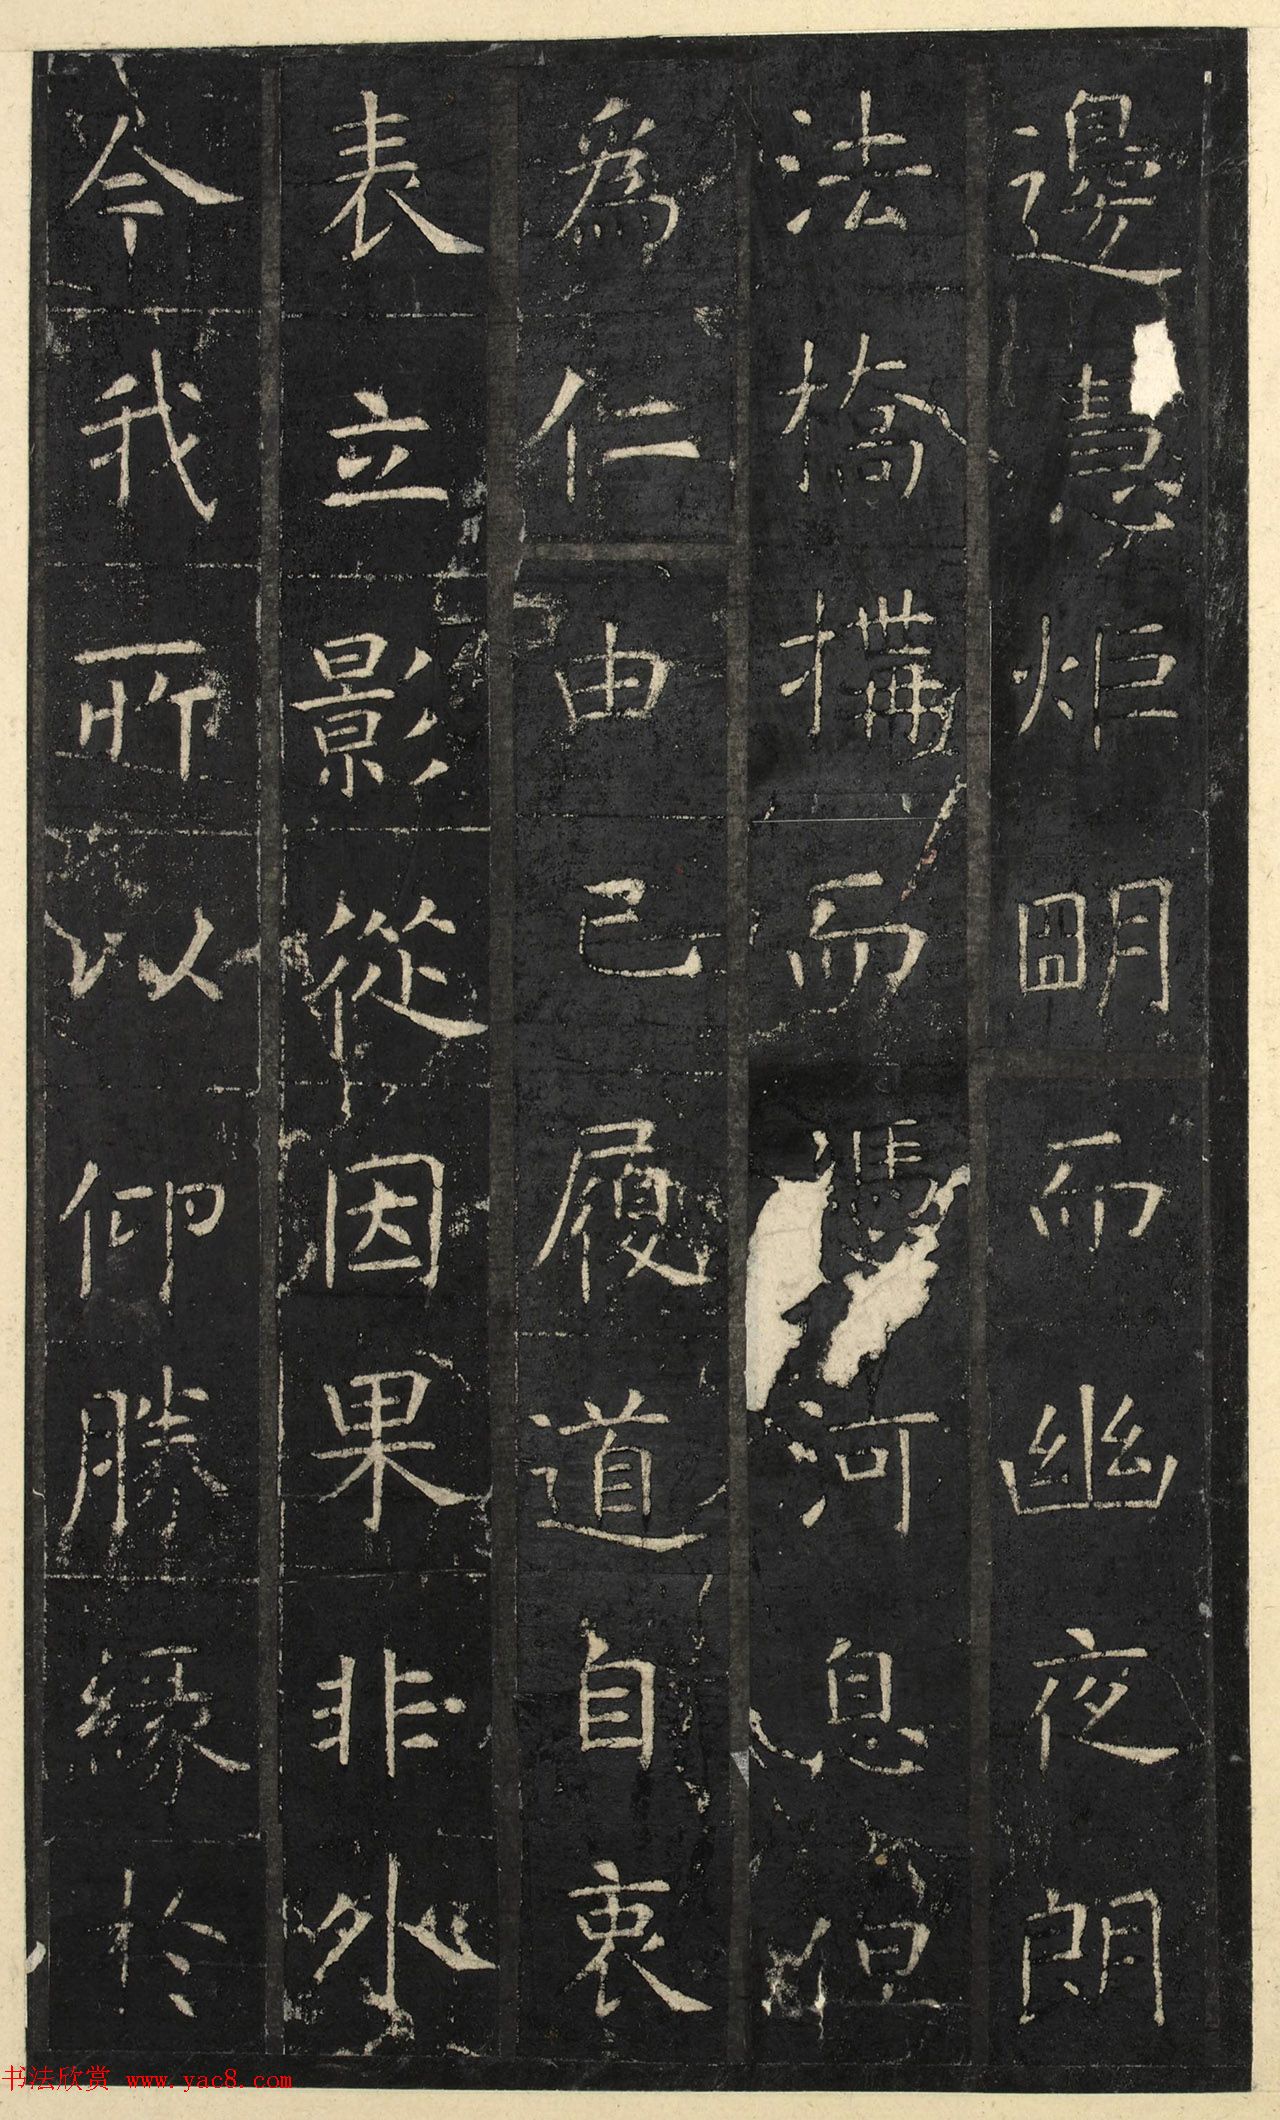 邊慧炬明而幽夜朗
法橋搆而馮河息但
為仁由己履道自衷
表立影從因果非外
今我所以仰勝緣於
书法欣赏 www.yac8.com